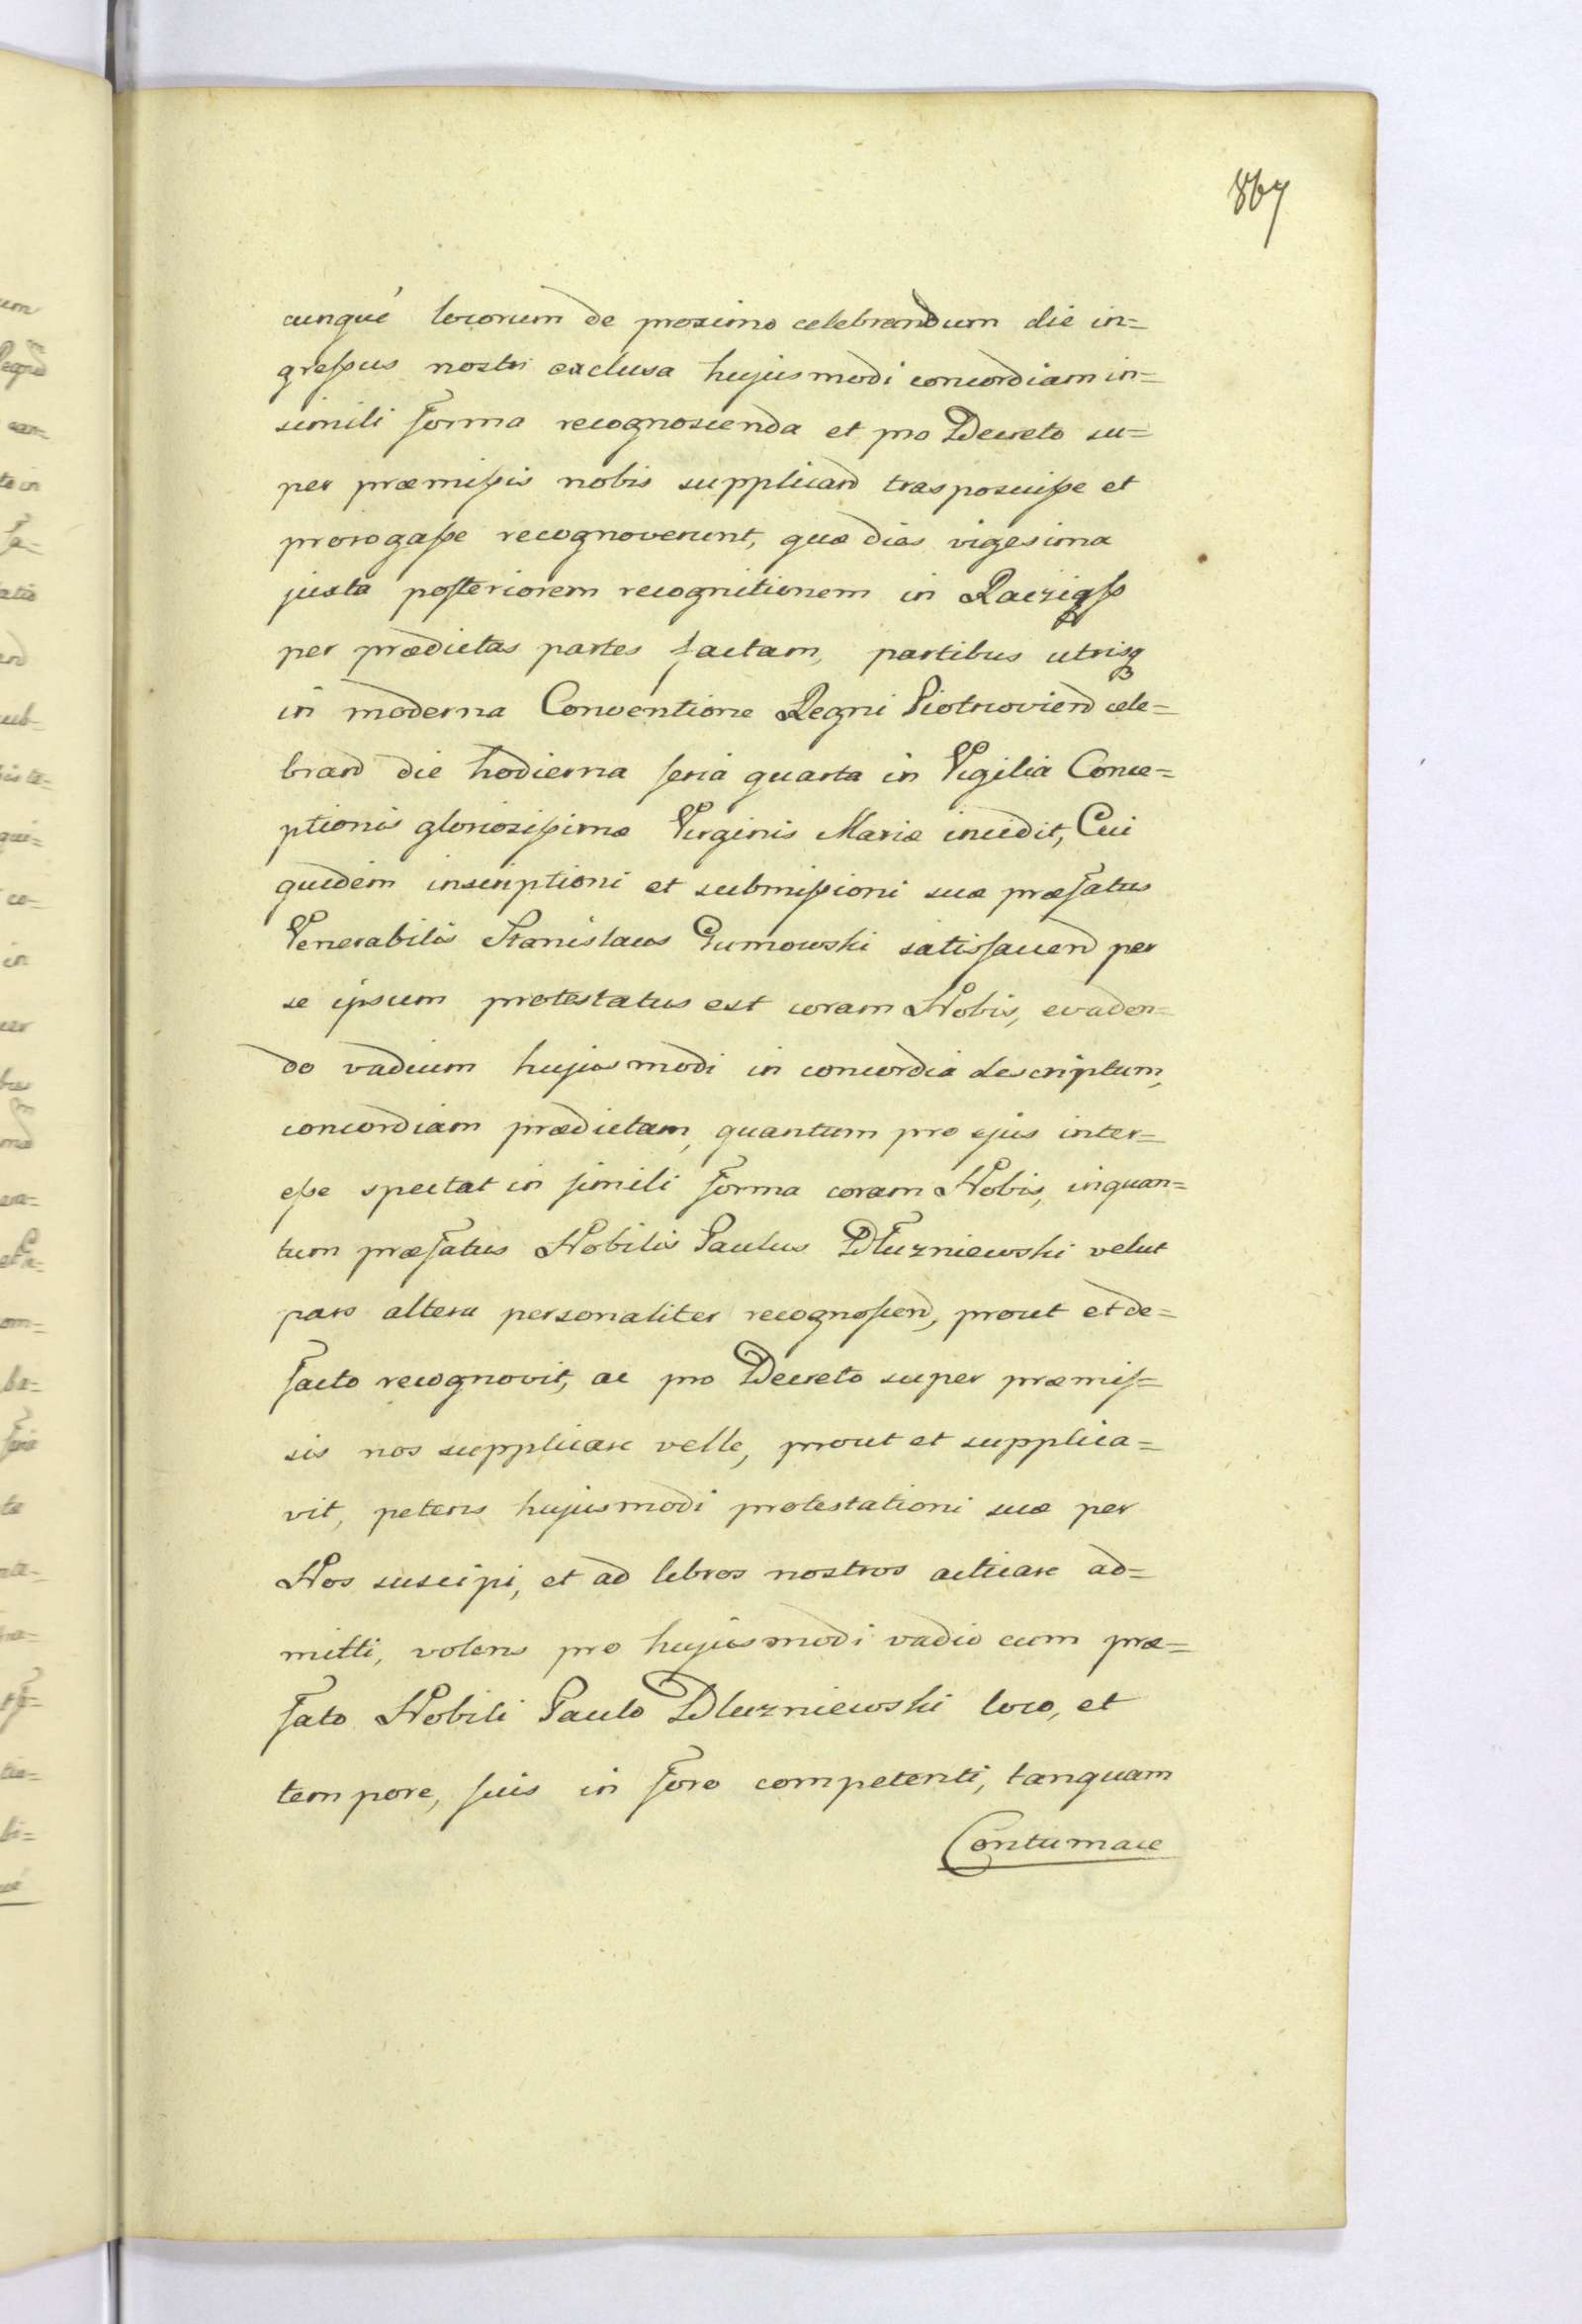 867
cunqué locorum de proximo celebrandum die in=
greſsus nostri exclusa hujusmodi concordiam in=
simili forma recognoscenda et pro Decreto su=
per præmiſsis nobis supplicand trasposuiſse et
prorogaſse recognoverunt, quæ dies vigesima
juxta poſteriorem recognitionem in Raciąſs
per prædictas partes factam, partibus utrisq
in moderna Conventione Regni Piotrcoviend cele=
brand die hodierna feria quarta in Vigilia Conce=
ptionis glorioziſsimæ Virginis Mariæ incidit, Cui
quidem inscriptioni et submiſsioni suæ præfatus
Venerabilis Stanislaus Gumowski satisfaciend per
se ipsum protestatus est coram Nobis, evaden=
do vadium hujusmodi in concordia descriptum,
concordiam prædictam, quantum pro ejus inter=
eſse spectat in ſimili forma coram Nobis, inquan=
tum præfatus Nobilis Paulus Dłuzniewski velut
pars altera personaliter recognoſcend, prout et de=
facto recognovit, ac pro Decreto super præmiſ=
sis nos supplicare velle, prout et supplica=
vit, petens hujusmodi protestationi suæ per
Nos suscipi, et ad libros nostros acticare ad=
mitti, volens pro hujusmodi vadio cum præ=
fato Nobili Paulo Dluzniewski loco, et
tempore, ſuis in foro competenti, tanquam
Contumace